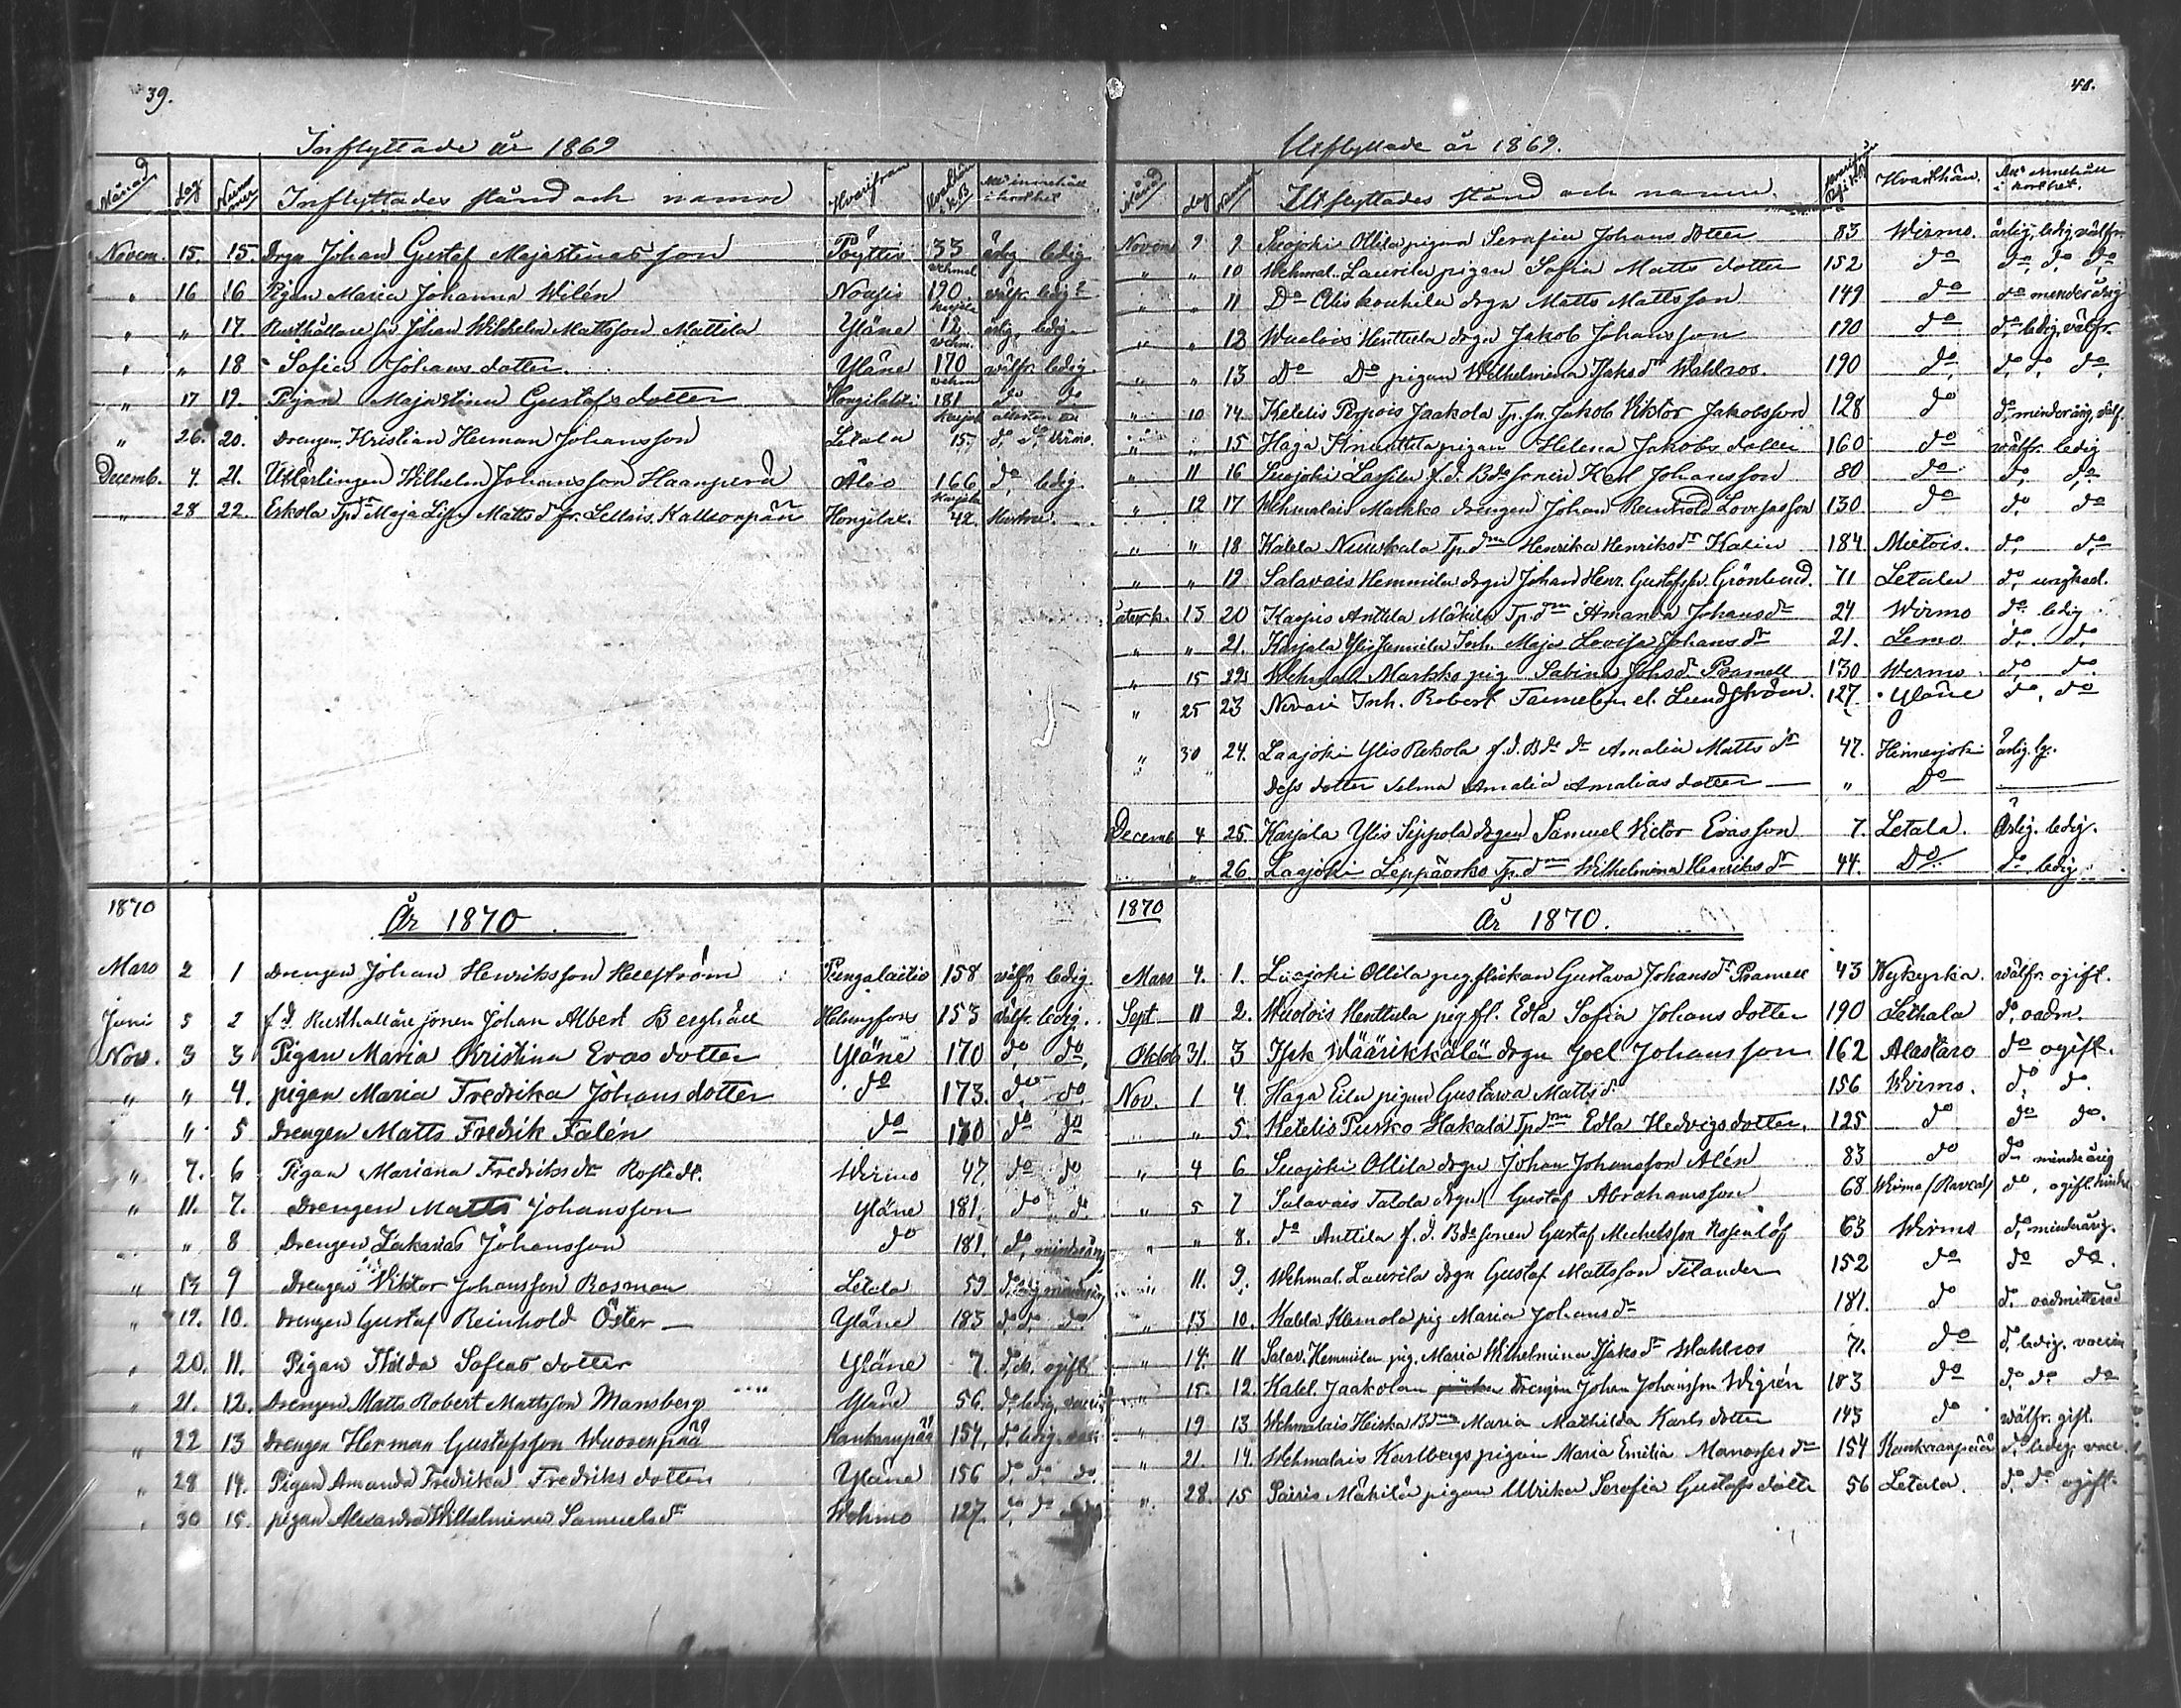 39.
Inflyttade år 1869
Månad dag Nummer Inflyttades stånd och namn Hvarifrån
Novem. 15. 15. Drgn Johan Gustaf Majastinas son Pöyttis 33 ärlig ledig
" 16 16 Pigan Maria Johanna Wilén Nousis 190 välfr. ledig
Wehmal
" " 17 Rusthållare sn Johan Wilhelm Mattsson Mattila Yläne 12 ärlig ledig
Karjala
" " 18 Sofia Johans dotter Yläne 170 välfr. ledig
Vehm.
" 17 19. Pigan Majastina Gustafs dotter Hongilaks 181 do do
Vehm
" 26. 20. Drengen Kristian Herman Johansson Letala 15. do do Virmo.
Karjal
Decemb. 4. 21. Utlärlingen Wilhelm Johansson Haanperä Åbo 166 do ledig.
" 28 22. Eskola Tpdr Maja Lisa Matts dr fr. Kallionpää Hongilax. 42. Hustru.
Karjala
1870
År 1870
Mars 2 1 Drengen Johan Henriksson Hellström Pungalaitio 158 välfr. ledig.
Juni 5 2 f.d. Rusthållare sonen Johan Albert Berghäll Helsingfors 153 välfr. ledig.
Nov. 3 3 Pigan Maria Kristina Evas dotter Yläne 170 do do
" " 4. pigan Maria Fredrika Johans dotter do 173. do do
" " 5 Drengen Matts Fredrik Falén do 170 do do
" 7. 6 Pigan Mariana Fredriks dr Rostedt. Wirmo 47. do do
" 11. 7. Drengen Matts Johansson Yläne 181. do do
" " 8 Drengen Zakarias Johansson do 181. do minderårig
" 13 9 Drengen Viktor Johansson Rosman Letala 59 do
" 19. 10. Drengen Gustaf Reinhold Öster Yläne 183 do do do
" 20. 11. Pigan Hilda Sofias dotter Yläne 7. ogift
" 21. 12. Drengen Matts Robert Mattsson Mansberg Yläne 56. do ledig
" 22 13 Drengen Herman Gustafsson Wuorenpää Kankaanpää 154. do ledig
" 28 14. Pigan Amanda Fredrika Fredriks dotter Yläne 156 do do do
" 30 15. pigan Alexandra Wilhelmina Samuels dr Wehmo 127. do do
40.
Utflyttade år 1869.
Månad dag Nummer Utflyttades stånd och namn. Hvarthän.
Novem 9 9 Suojoki Ollila pigan Serafia Johans dotter 83 Wirmo. ärlig, ledig, välfr.
" " 10 Wehmal. Laurila pigan Sofia Matts dotter 152 do do, do, do,
" " 11 Do drgn Matts Mattsson 149 do do minderårig
" " 12 Wuolois Henttula drgn Jakob Johansson 190 do do ledig, välfr.
" " 13 Do Do pigan Wilhelmina Isaks dr Wahlroos. 190 do do, do, do,
" 10 14. Ketelis Perpois Jaakola Tp. sn. Jakob Viktor Jakobsson 128 do do minderårig, välf.
" " 15 Haga Knuuttila pigan Helena Jakobs dotter 160 do välfr. ledig
" 11 16 Suojoki Lassila f.d. Bde sonen Karl Johansson 80 do do, do
" 12 17 Wehmalais Markko drengen Johan Reinhold Lovisasson 130. do do do
" " 18 Kalela Nuuskala Tp. drn Henrika Henriks dr Kalin 184. Mietois. do, do,
" " 19 Salavais Hemmila drgn Johan Henr. Gustafsson Grönlund. 71 Letala do, ungkarl.
" 13 20 Karjis Anttila Mäkilä Tp. drn Amanda Johans dr 24 Wirmo do. ledig
" " 21. Karjala Inh. Maja Lovisa Johans dr 21. Lemo do. do
" 15 22. Wehmal. Markko pig Sabina Johs dr Ramell 130 Wermo. do, do.
" 25 23 Inh. Robert Tammelin el. Lundström. 127. Yläne do, do
" 30 24. Laajoki Ylis Rekola f.d. Bde dr Amalia Matts dr 47. Hinnerjoki ärlig
Dess dotter Selma Amalia Amalias dotter " Do
Decemb 4 25 Karjala Ylis Sippola drgen Samuel Victor Evasson 7. Letala. Ärlig. ledig.
" 26. Laajoki Leppäorko Tp. drn Wilhelmina Henriks dr 44. Do do, ledig
1870
År 1870.
Mars 4. 1. Laajoki Ollila pig. flickan Gustava Johans dr Ramell 43 Nykyrka. välfr. ogift.
Sept 11 2. Wuolois Henttula pig fl. Edla Sofia Johans dotter 190 Lethala do, oadm.
Oktob 31. 3 Isak Wäärikkälä drgn Joel Johansson 162 Alastaro do ogift.
Nov. 1 4. Haga Eila pigan Gustava Matts dr 156 Wirmo. do, do.
" 5. Ketelis Pursko Hakala Tp drn Edla Hedvigs dotter. 125 do do do.
" 4 6 Suojoki Ollila drgn Johan Johansson Alén 83 do do minderårig
" 5 7 Salavais Talola drgn Gustaf Abrahamsson 68 Wirmo do, ogift
" " 8. do Anttila f.d. Bde sonen Gustaf Michelsson Rosenlöf 63 Wirmo do, minderårig.
11. 9. Wehmal. Laurila drgn Gustaf Mattsson Tilander 152 do do do.
" 13 10. Kalela Hernola pig Maria Johans dr 181. do do. oadmitterad
" 14. 11 Salav. Hemmila pig. Maria Wilhelmina Isaks dr Wahlroos 71. do do. ledig. vaccin
" 15. 12. Kalel. Jaakolan drengen Johan Johansson Wigrén 183 do do. do. do
" 19 13 Wehmalais Heiska Maria Mathilda Karls dotter 143 do välfr. gift.
" 21. 14. Wehmalais Karlbergs pigan Maria Emilia Manasses dr 154 Kankaanpää do, ledig, vacc.
" 28. 15 Pairis Mäkilä pigan Ulrika Serafia Gustafs dotter 56 Letala. do. do ogift.